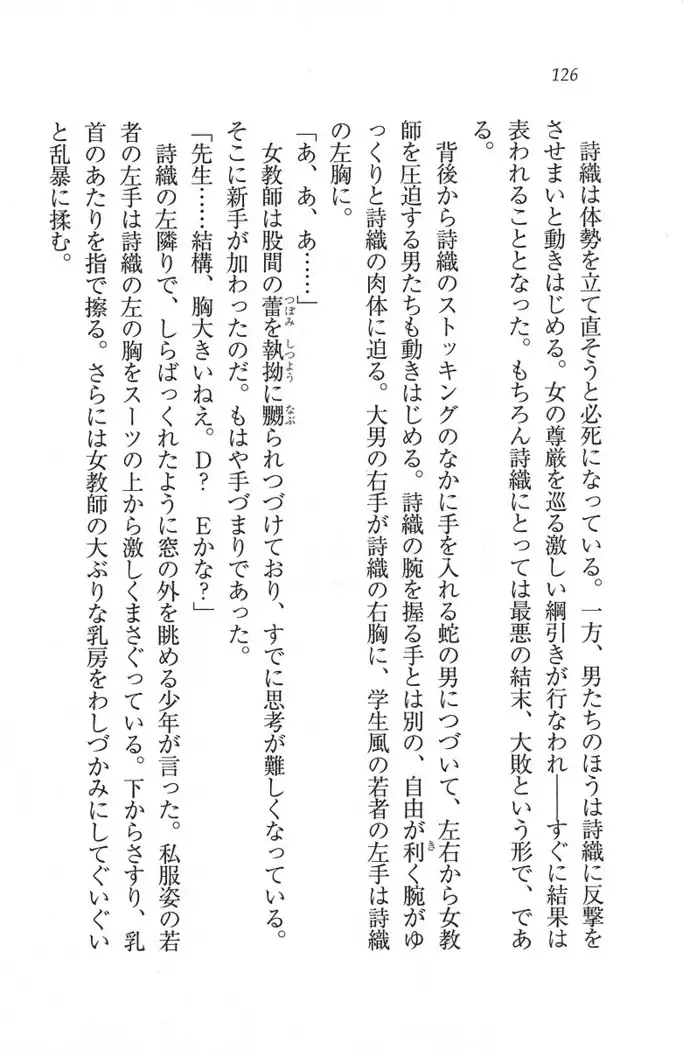 126
詩織は体勢を立て直そうと必死になっている。一方、男たちのほうは詩織に反撃を
させまいと動きはじめる。女の尊厳を巡る激しい綱引きが行なわれ――すぐに結果は
表われることとなった。もちろん詩織にとっては最悪の結末、大敗という形で、であ
る。
背後から詩織のストッキングのなかに手を入れる蛇の男につづいて、左右から女教
師を圧迫する男たちも動きはじめる。詩織の腕を握る手とは別の、自由が利く腕がゆ
っくりと詩織の肉体に迫る。大男の右手が詩織の右胸に、学生風の若者の左手は詩織
の左胸に。
「あ、あ、あ……」
女教師は股間の蕾を執拗に嬲られつづけており、すでに思考が難しくなっている。
そこに新手が加わったのだ。もはや手づまりであった。
「先生……結構、胸大きいねえ。D？　Eかな？」
詩織の左隣りで、しらばっくれたように窓の外を眺める少年が言った。私服姿の若
者の左手は詩織の左の胸をスーツの上から激しくまさぐっている。下からさすり、乳
首のあたりを指で擦る。さらには女教師の大ぶりな乳房をわしづかみにしてぐいぐい
と乱暴に揉む。